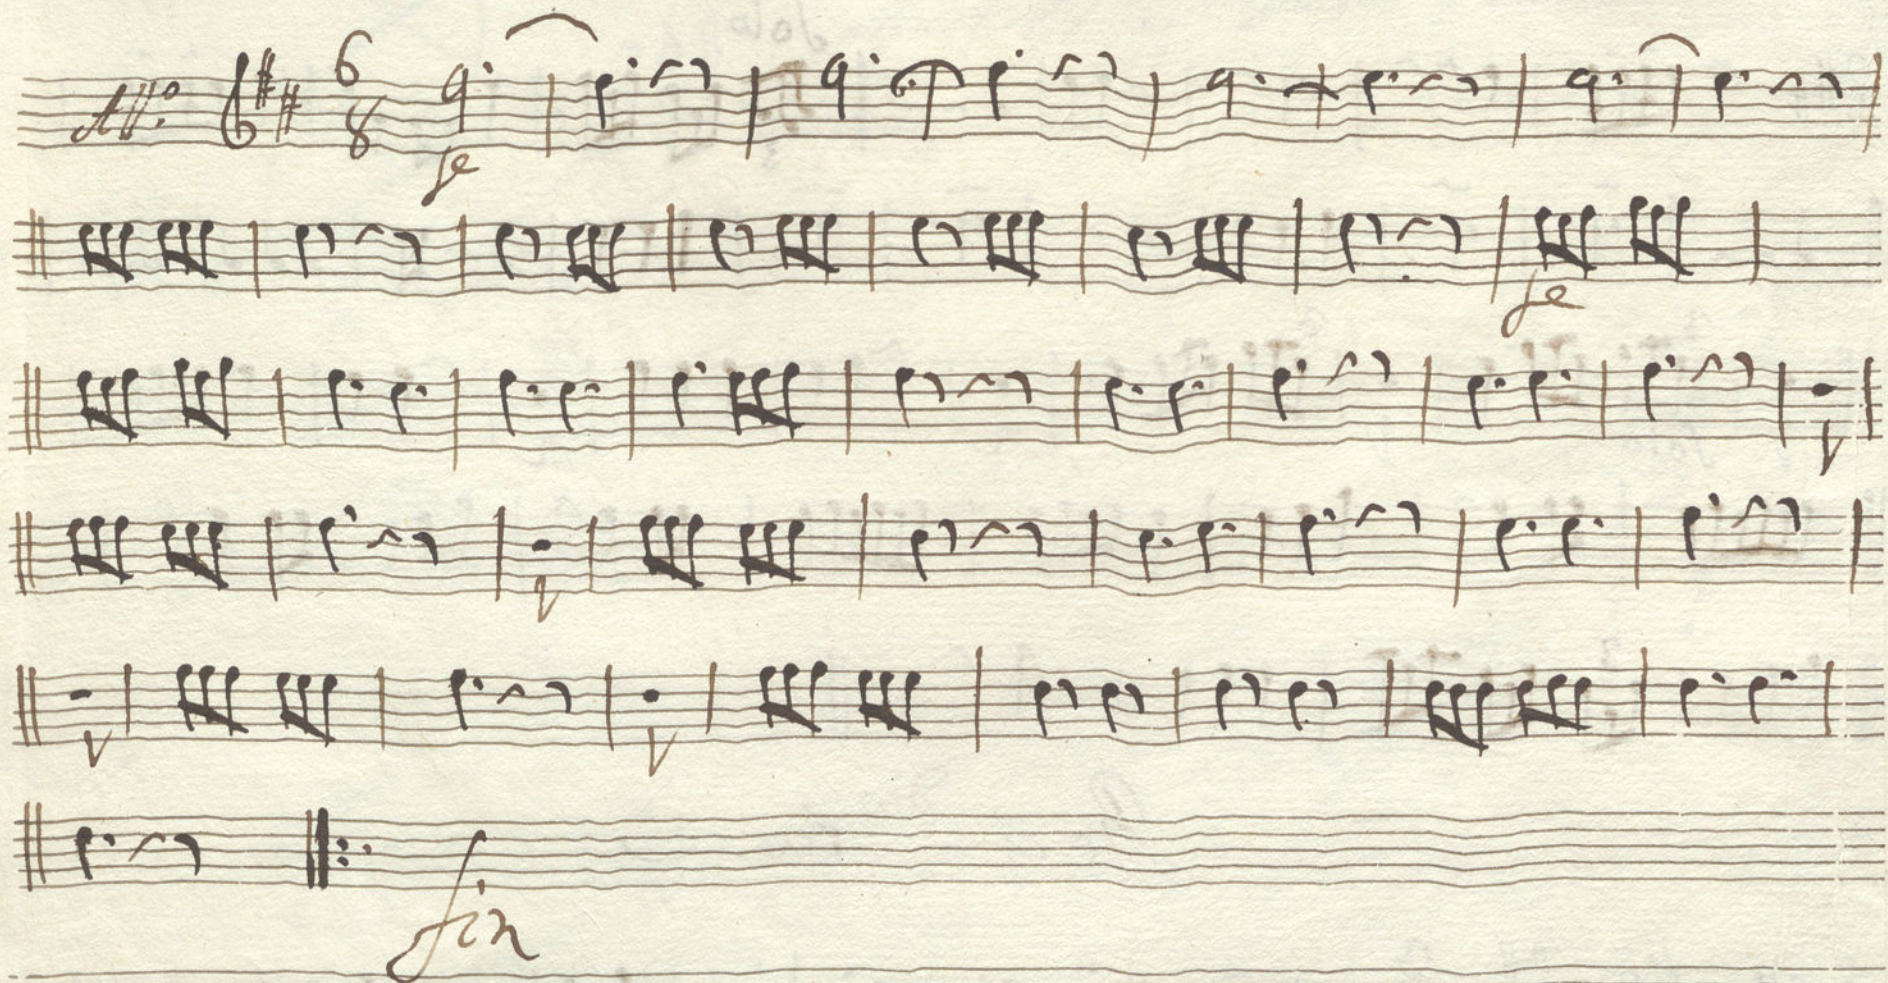 All.o 6 8
fe
fe
fin